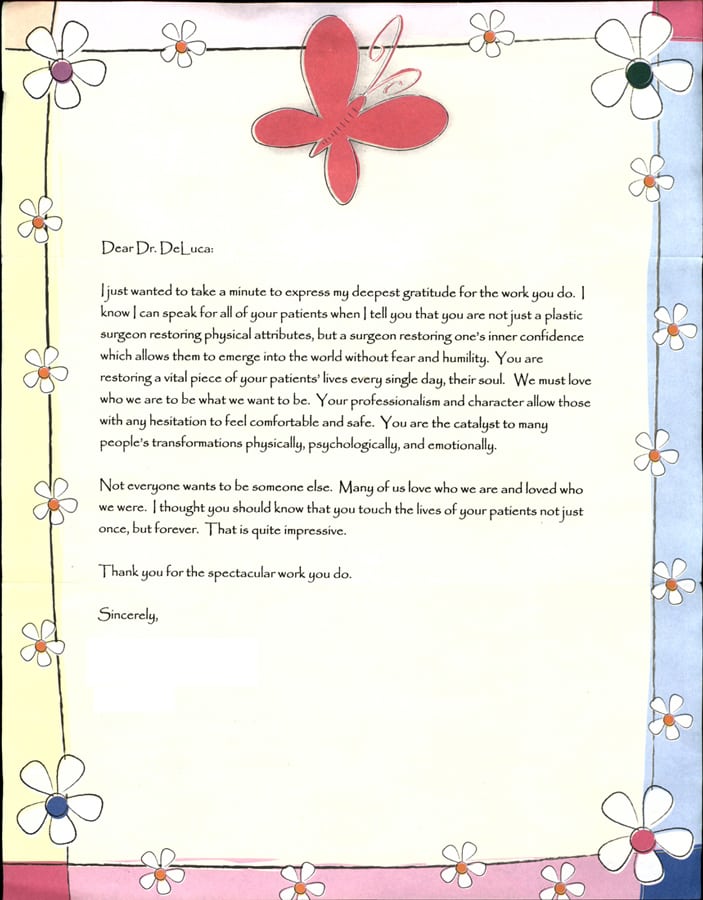 Dear Dr. DeLuca:
I just wanted to take a minute to express my deepest gratitude for the work you do. I
know I can speak for all of your patients when I tell you that you are not just a plastic
surgeon restoring physical attributes, but a surgeon restoring one's inner confidence
which allows them to emerge into the world without fear and humility. You are
restoring a vital piece of your patients' lives every single day, their soul. We must love
who we are to be what we want to be. Your professionalism and character allow those
with any hesitation to feel comfortable and safe. You are the catalyst to many
people's transformations physically, psychologically, and emotionally.
Not everyone wants to be someone else. Many of us love who we are and loved who
we were. I thought you should know that you touch the lives of your patients not just
once, but forever. That is quite impressive.
Thank you for the spectacular work you do.
Sincerely,